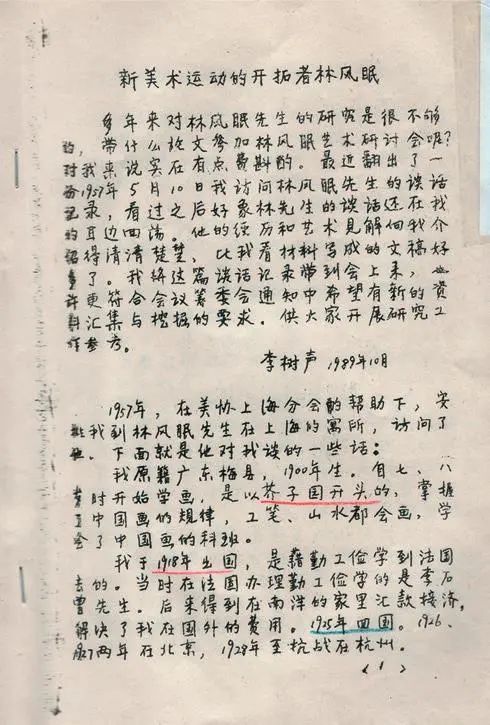 新美术运动的开拓者林风眠
多年来对林风眠先生的研究是很不够
的，带什么样文参加林风眠艺术研讨会呢？
对我来说实在有点费斟酌。最近翻出了一
份1957年5月10日我访问林风眠先生的谈话
记录，看过之后好象林先生的谈话还在我
的耳边回荡。他的经历和艺术见解向我介
绍得清清楚楚，比我看材料写成的文稿好
多了。我将这篇谈话记录带到会上来，也
许更符合会议筹委会通知中希望有新的资
料汇集与挖掘的要求。供大家开展研究工
作参考。
李树声 1989年10月
1957年，在美协上海分会的帮助下，安
排我到林风眠先生在上海的寓所，访问了
他。下面就是他对我谈的一些话：
我原籍广东梅县，1900年生。自七、八
岁时开始学画，是以芥子园开头的，掌握
了中国画的规律，工笔、山水都会画，学
会了中国画的科班。
我于1918年出国，是藉勤工俭学到法国
去的。当时在法国办理勤工俭学的是李石
曾先生。后来得到在南洋的家里汇款接济，
解决了我在国外的费用。1925年回国。1926、
1927两年在北京，1928年至抗战在杭州。
（1）